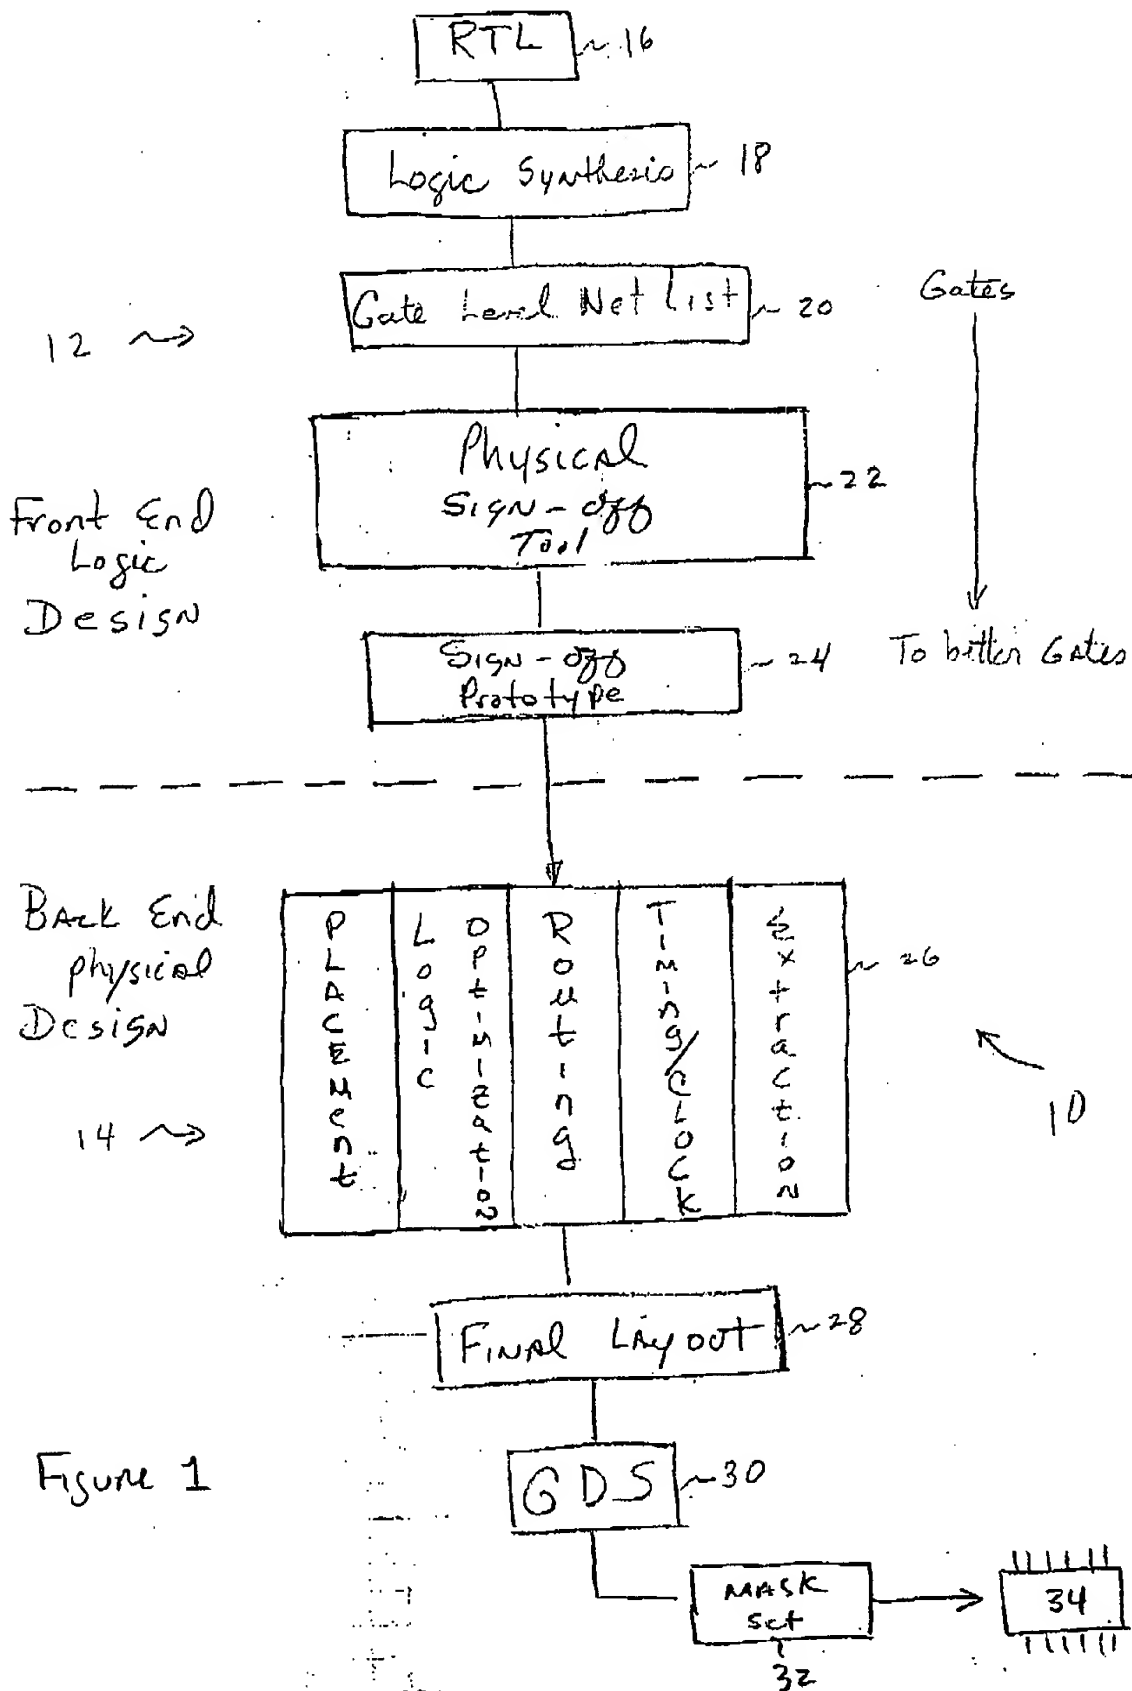 RTL 16
Logic Synthesis 18
Gate Level Net List 20
Gates
12
Physical
Sign-off
Tool
22
Front End
Logic
Design
Sign-off
Prototype
24
To better Gates
Back End
physical
Design
14
PLACEMENT
Logic
Optimization
Routing
Timing/Clock
Extraction
26
10
Final Layout 28
Figure 1
GDS 30
MASK
Set
32
34